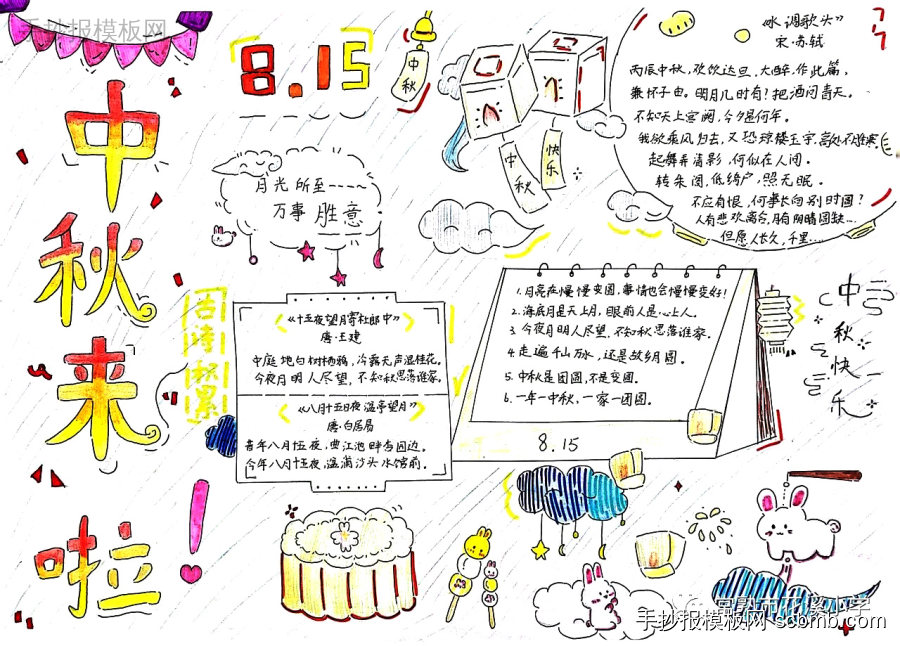 手抄报模板网
中秋来啦!
8.15
中秋
中秋
快乐
月光所至----
万事胜意
《水调歌头》
宋·苏轼
丙辰中秋,欢饮达旦,大醉,作此篇,
兼怀子由。明月几时有?把酒问青天。
不知天上宫阙,今夕是何年。
我欲乘风归去,又恐琼楼玉宇,高处不胜寒
起舞弄清影,何似在人间。
转朱阁,低绮户,照无眠。
不应有恨,何事长向别时圆?
人有悲欢离合,月有阴晴圆缺...
但愿人长久,千里...
古诗积累
《十五夜望月寄杜郎中》
唐·王建
中庭地白树栖鸦,冷露无声湿桂花。
今夜月明人尽望,不知秋思落谁家。
《八月十五日夜湓亭望月》
唐·白居易
昔年八月十五夜,曲江池畔杏园边。
今年八月十五夜,湓浦沙头水馆前。
1.月亮在慢慢变圆,事情也会慢慢变好!
2.海底月是天上月,眼前人是心上人。
3.今夜月明人尽望,不知秋思落谁家。
4.走遍千山万水,还是故乡月圆。
5.中秋是团圆,不是变圆。
6.一年一中秋,一家一团圆。
8.15
中秋快乐
手抄报模板网 scbmb.com